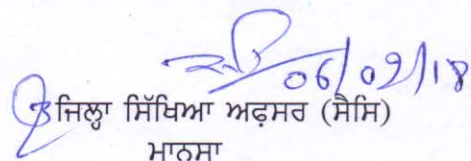 06/02/18
ਜਿਲ੍ਹਾ ਸਿੱਖਿਆ ਅਫ਼ਸਰ (ਸੈਸਿ)
ਮਾਨਸਾ